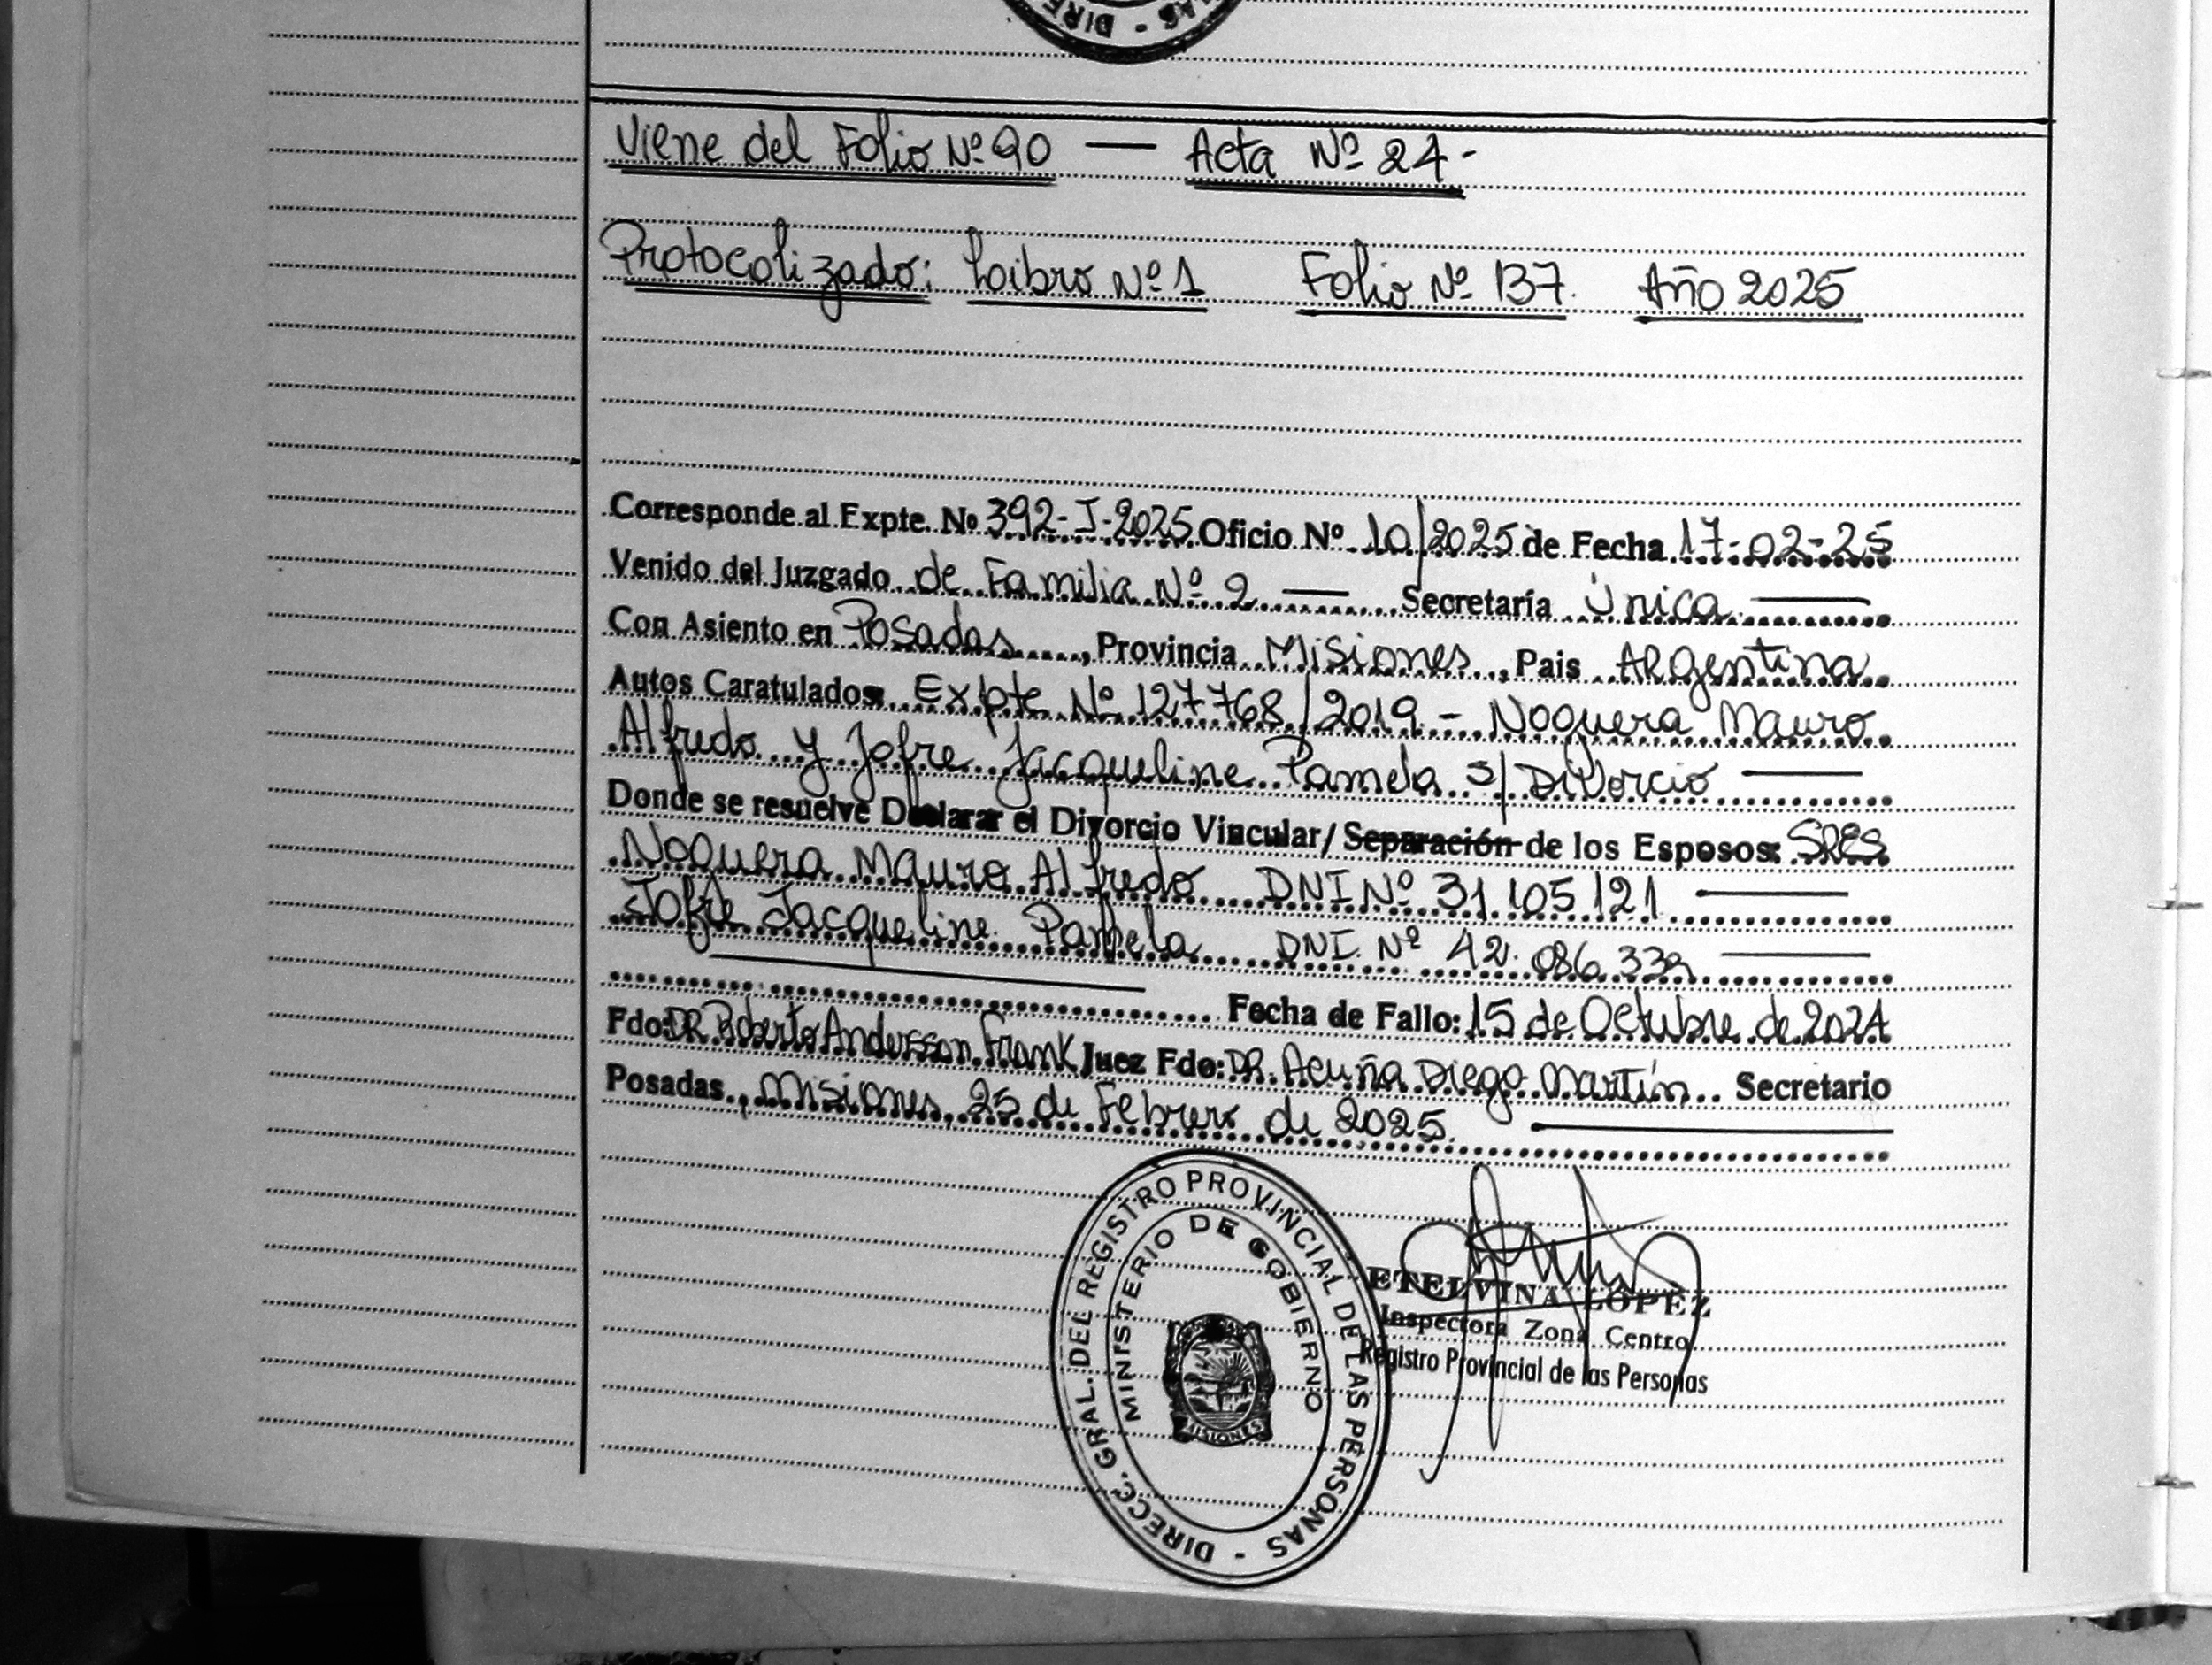 DIRE - AS
Viene del Folio Nº 90 — Acta Nº 24-
Protocolizado: Libro Nº 1 Folio Nº 137. Año 2025
Corresponde al Expte. Nº 392-I-2025 Oficio Nº 10/2025 de Fecha 17-02-25
Venido del Juzgado de Familia Nº 2 — Secretaría Única —
Con Asiento en Posadas, Provincia Misiones, Pais Argentina
Autos Caratulados: Expte Nº 127768/2019 - Noguera Mauro
Alfredo y Jofre Jacqueline Pamela s/ Divorcio —
Donde se resuelve Declarar el Divorcio Vincular/ Separación de los Esposos: SRES
Noguera Mauro Alfredo DNI Nº 31.105.121 —
Jofre Jacqueline Pamela DNI. Nº 42.086.339 —
Fecha de Fallo: 15 de Octubre de 2024
Fdo: DR Roberto Andersson Frank Juez Fdo: DR. Acuña Diego Martín.. Secretario
Posadas, Misiones, 25 de Febrero de 2025.
DIRECC. GRAL. DEL REGISTRO PROVINCIAL DE LAS PERSONAS -
MINISTERIO DE GOBIERNO
MISIONES
ETELVINA LÓPEZ
Inspectora Zona Centro
Registro Provincial de las Personas